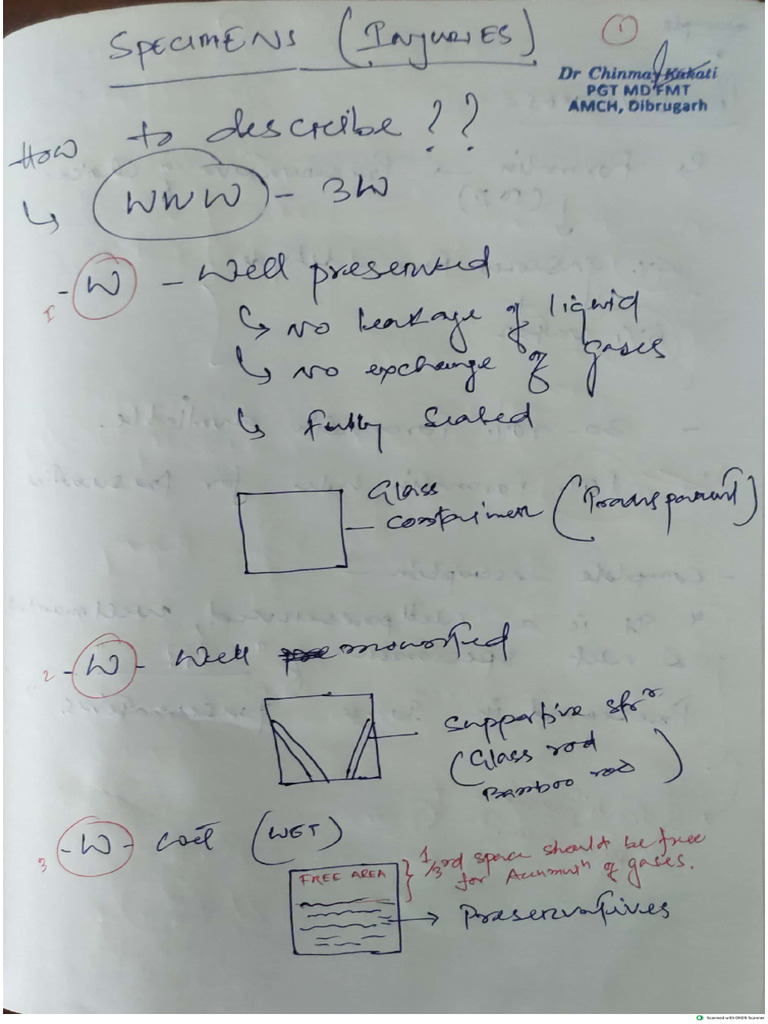 SPECIMENS (INJURIES)
1
Dr Chinmay Kakati
PGT MD FMT
AMCH, Dibrugarh
How to describe ??
↳ WWW - 3W
1 - W - Well preserved
↳ No leakage of liquid
↳ No exchange of gases
↳ Fully Sealed
Glass
container (Transparent)
2 - W - Well mounted
Supportive str^r
(Glass rod
Bamboo rod)
3 - W - (WET)
FREE AREA
1/3rd space should be free
for of gases.
→ Preservatives
Scanned with OKEN Scanner